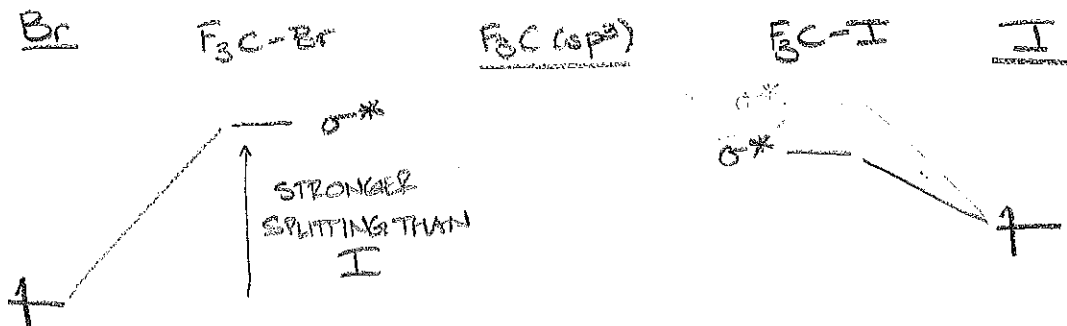 Br F₃C-Br F₃C (sp³) F₃C-I I
σ* σ*
σ*
STRONGER
SPLITTING THAN
I